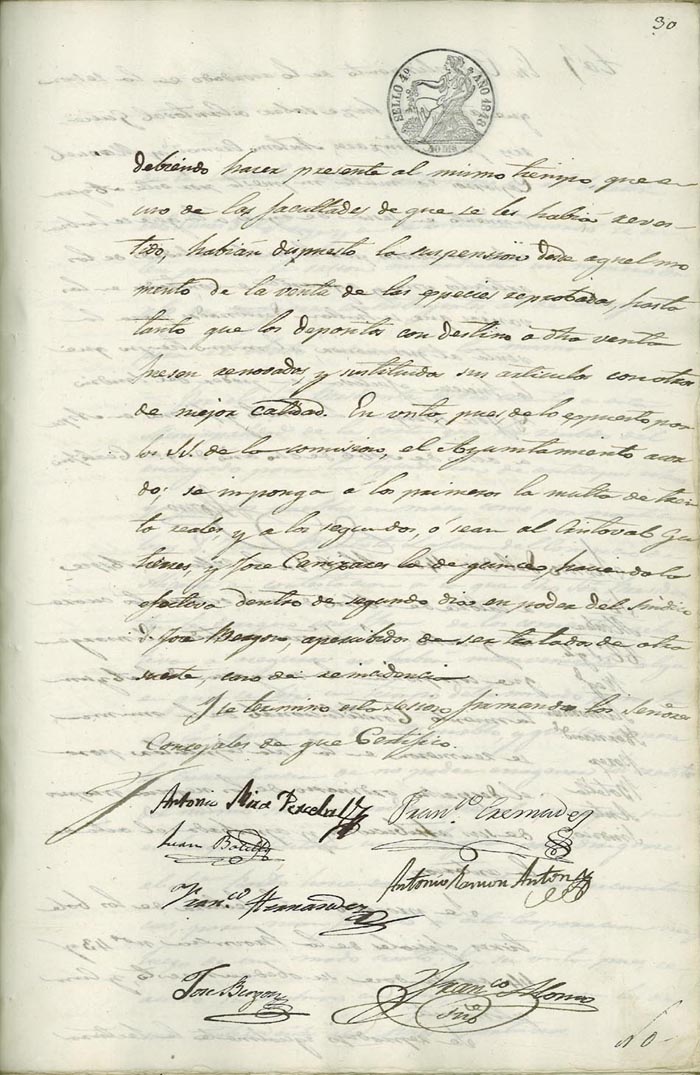 30
SELLO 4º AÑO 1848
40 Ms
debiendo hacer presente al mismo tiempo que en
uso de las facultades de que se les había reves-
tido, habían dispuesto la suspension desde aquel mo
mento de la venta de las especies reprobadas, hasta
tanto que los depositos con destino a dha venta
fuesen renovados, y sustituidos sus articulos con otros
de mejor calidad. En vista, pues de lo espuesto por
los SS. de la comision, el Ayuntamiento acor
dó; se imponga á los primeros la multa de trein
ta reales y a los segundos, ó sean al Cristoval Gu
tierres, y Jose Campaces la de quince, haciendola
efectiva dentro de segundo dia en poder del Sindico
D. José Berzon, apercibidos de ser tratados de otra
suerte, caso de reincidencia
Y se termino esta sesion firmando los Señores
Concejales de que Certifico.
Antonio Mira Percebal
Franco Cremades
Juan Botella
Antonio Ramon Anton
Franco Hernandez
Jose Berzon
Franco Alonso
Srio